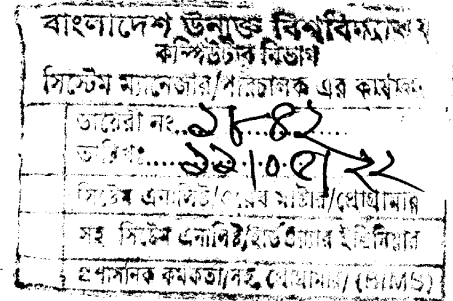 বাংলাদেশ উন্মুক্ত বিশ্ববিদ্যালয়
কম্পিউটার বিভাগ
সিস্টেম ম্যানেজার/পরিচালক এর কার্যালয়
ডায়েরী নং...
তারিখঃ...
সিস্টেম এনালিষ্ট/ওয়েব মাষ্টার/প্রোগ্রামার
সহ সিস্টেম এনালিষ্ট/হার্ডওয়্যার ইঞ্জিনিয়ার
প্রশাসনিক কর্মকর্তা/সহ. প্রোগ্রামার/